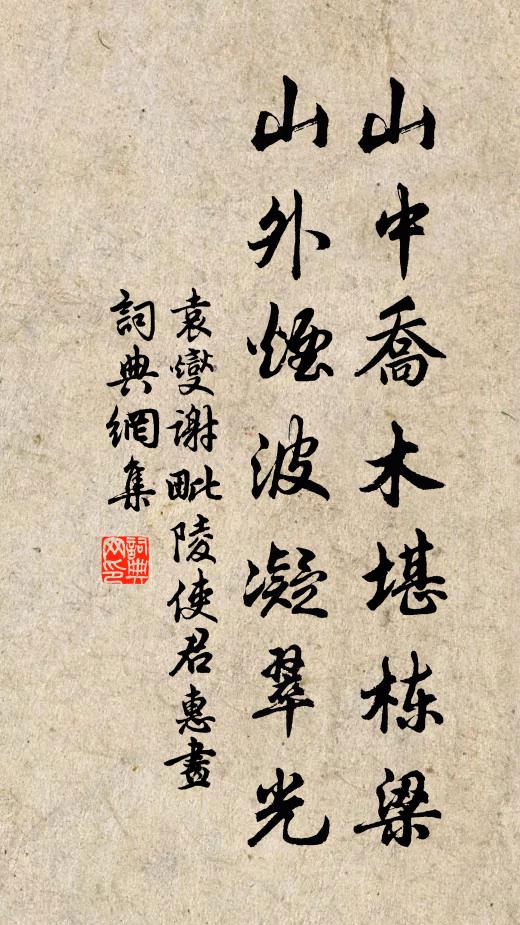 山中喬木堪栋梁
山外煙波凝翠光
袁燮谢毗陵使君惠畫
詞典網集
詞典網印